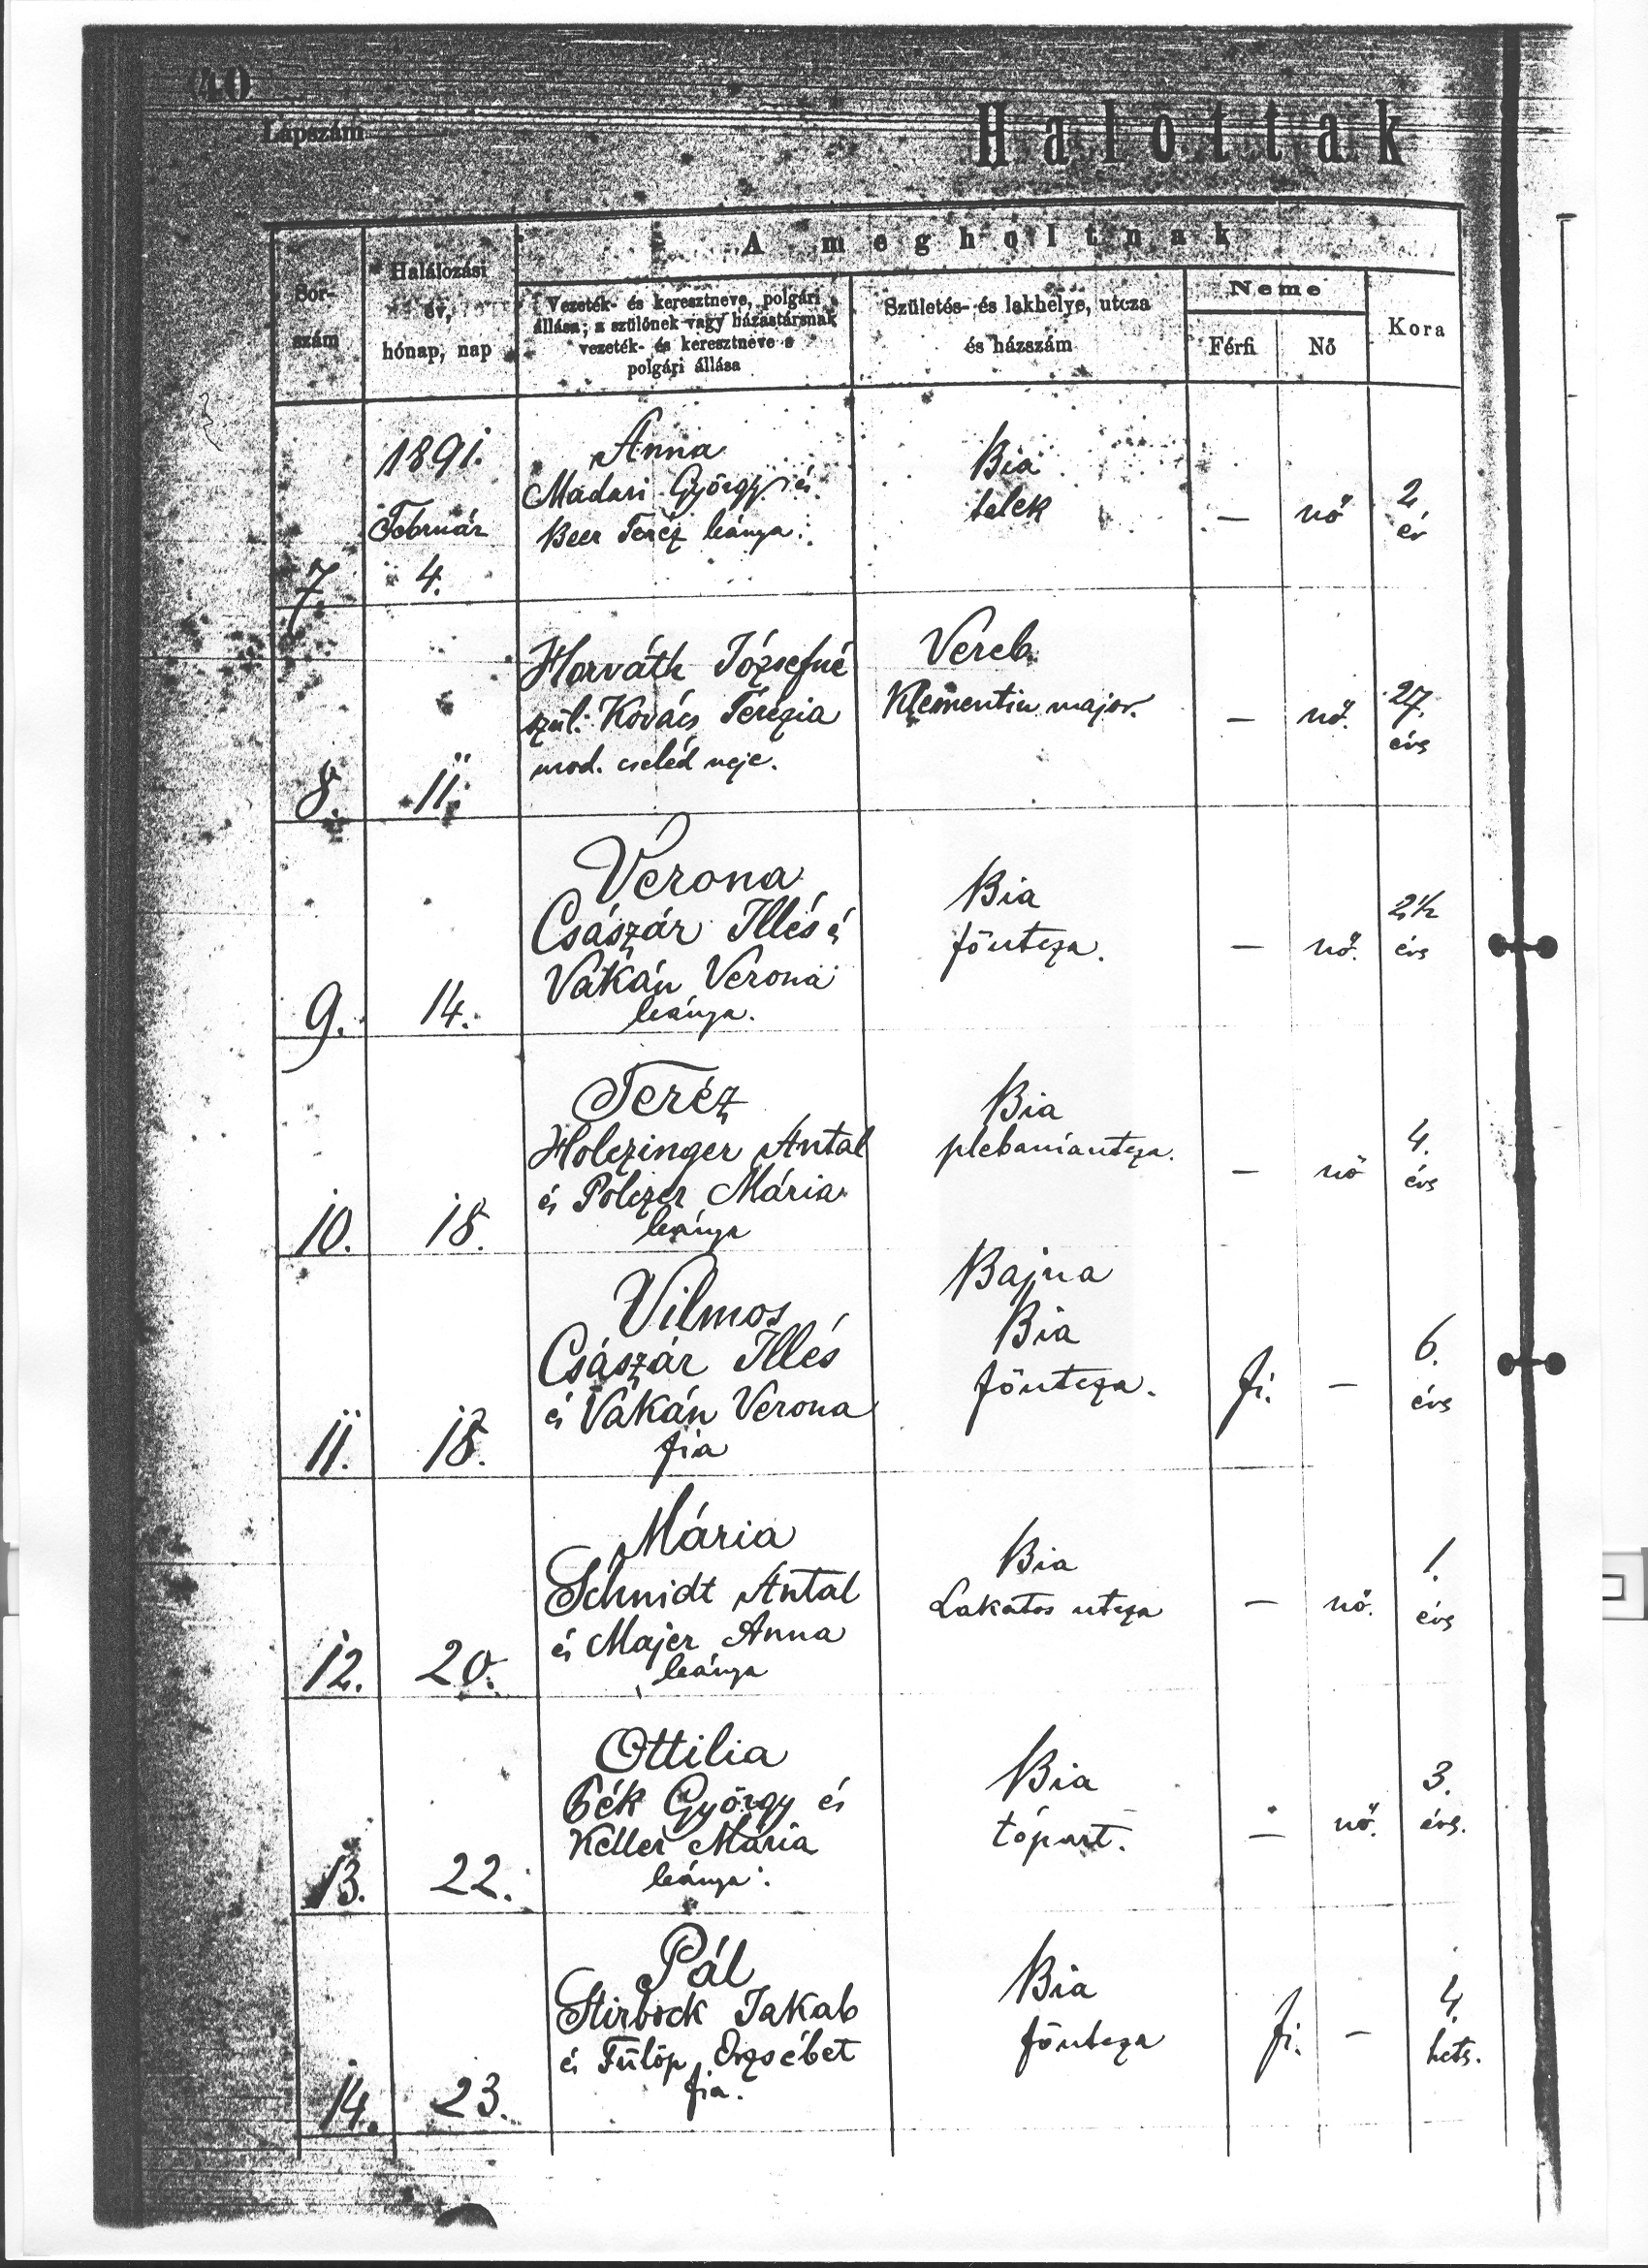 40
Lapszám
Halottak
A megholtnak
Sor-
szám
Halálozási
év,
hónap, nap
Vezeték- és keresztneve, polgári
állása; a szülőnek vagy házastársnak
vezeték- és keresztneve s
polgári állása
Születés- és lakhelye, utcza
és házszám
Neme
Férfi
Nő
Kora
1891.
Február
7. 4.
Anna
Madari György és
Beer Teréz leánya.
Bia
telek
— nő 2
év
8. 11.
Horváth Józsefné
szül. Kovács Terézia
urod. cseléd neje.
Vereb
Klementin major.
— nő. 27.
éves
9. 14.
Verona
Császár Illés é
Vákán Verona
leánya.
Bia
főutcza.
— nő. 2½
éves
10. 18.
Teréz
Holczinger Antal
és Polczer Mária
leánya
Bia
plebaniautcza.
— nő 4.
éves
11. 18.
Vilmos
Császár Illés
és Vákán Verona
fia
Bajna
Bia
főutcza.
fi. — 6.
éves
12. 20.
Mária
Schmidt Antal
és Majer Anna
leánya
Bia
Lakatos utcza
— nő. 1.
éves
13. 22.
Ottilia
Bék György és
Keller Mária
leánya.
Bia
tópart.
— nő. 3.
éves.
14. 23.
Pál
Stirbock Jakab
és Fülöp Erzsébet
fia.
Bia
főutcza
fi. — 4.
hets.